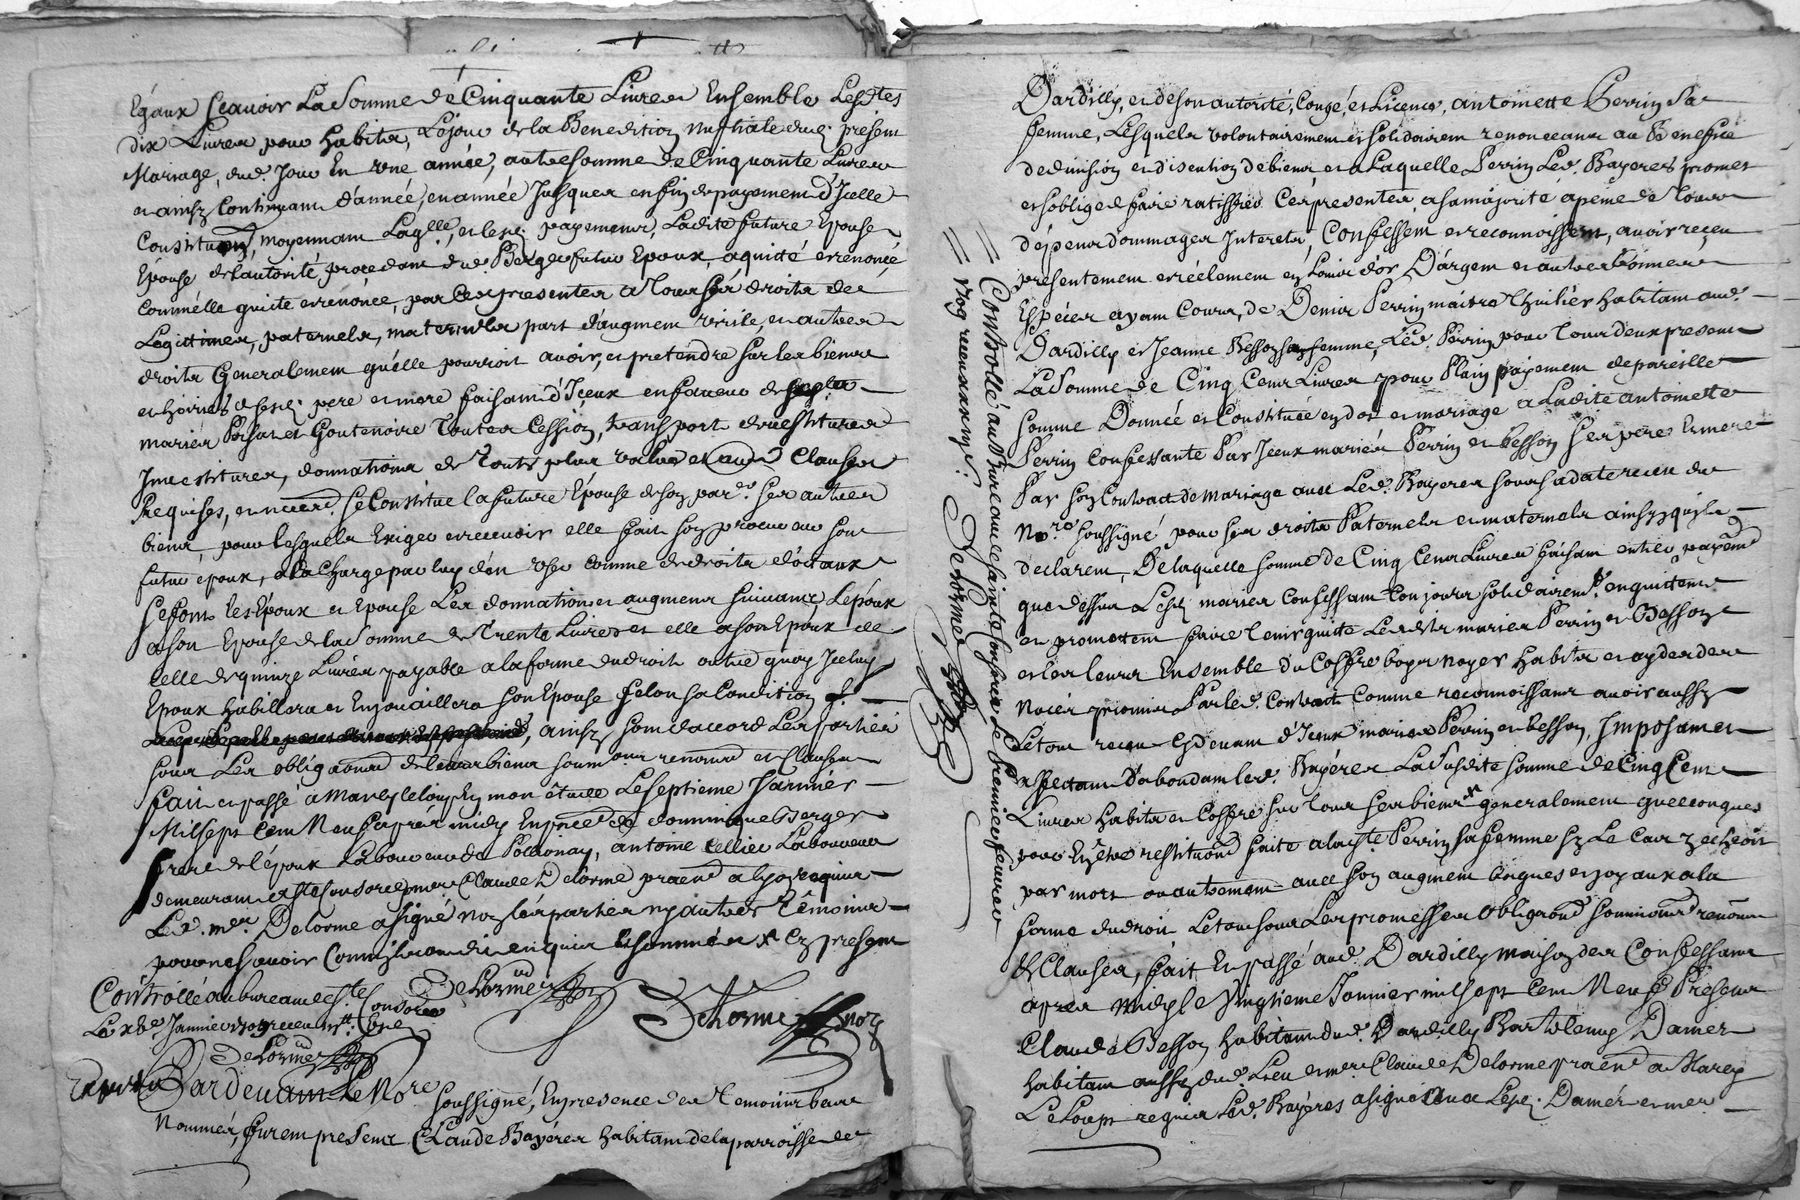 Egaux scavoir La Somme de Cinquante Livres Ensemble Lesdtes
dix Livres pour habits, Lejour de la Benediction nuptiale dud. present
Mariage, dud. Jour En une année, autre somme de Cinquante Livres
et ainsy Continuant d'année en année Jusques en fin de payement d'Icelle
Constitution, moyennant Laqlle, et lesd. payements, Ladite future Epouse
Epouse de l'autorité, procedant dud. Berger futur Epoux, a quitté et renoncé
Comme elle quitte et renonce, par Ces presentes a Tous ses droits de
Legittimes, paternels, maternels part d'augment virile, et autres
droits Generalement qu'elle pourroit avoir, et pretendre sur les biens
et hoiries de sesd. pere et mere faisant d'Iceux en faveur de
mariés et Goutenoire Toutes Cession, transport devestitures
Investitures, donnations de Toute plus value et autres Clauses
Requises, et Se Constitue la future Epouse de son par. ses autres
biens, pour lesquels Exiger et recevoir elle fait son procureur son
futur époux, a la Charge par luy d'en user comme de droits dotaux
Se font les Epoux et Epouse Les donnations et augment suivants, L'époux
a son Epouse de la Somme de Trente Livres et elle a son Epoux de
Celle de quinze Livres payable a la forme du droit outre quoy Iceluy
Epoux habillera et Enjouaillera son Epouse selon sa Condition
ainsy sont d'accord Les parties
sous Les obligaons de leurs biens soumions renonons et Clauses
fait et passé a Marcy le loup En mon étude Le septieme Janvier
Mil sept Cent Neuf apres midy En pnce de dominique Berger
frere de l'époux Laboureur de Pollionay, antoine Cellier Laboureur
demeurant a Ste Consorce et mer Claude Delorme praen a lyon requis
Led. mer. Delorme a signé non les parties ny autres Témoins
pour ne scavoir Comme ils ont dit enquis et sommés et En present
Delorme
Contrôllé au bureau de Ste Consorce
Le xbe Janvier 1709 receu
Delorme Delorme Nore
Pardevant Le Nore soussigné, En presence des Temoins bas
Nommés, furent presents Claude Bayéres habitant de la parroisse de
Dardilly, et de son autorité, Congé, et Licence, antoinette Perrin Sa
femme, Lesquels volontairement et solidairemt renonceants au Benefice
de division et discution de biens, et a Laquelle Perrin Led. Bayeres promet
et s'oblige de faire ratiffier Ces presentes a sa majorité a peine de Tous
dépens dommages Interets, Confessent et reconnoissent, avoir receu
presentement et réelement en Louis d'or D'argent et autres bonnes
Espéces ayant Cours, de Denis Perrin maitre Thuilier habitant aud.
Dardilly et Jeanne Besson sa femme, Led. Perrin pour Tous deux present
La Somme de Cinq Cents Livres pour Plain payement de pareille
somme Donnée et Constituée en dot et mariage a Ladite antoinette
Perrin Confessante Par Iceux mariés Perrin et Besson Ses pere Et mere
Par son Contract de mariage avec Led. Bayeres sous sa date receu du
Nore soussigné pour ses droits Paternels et maternels ainsy qu'ils
declarent, De laquelle somme de Cinq Cents Livres faisant entier payemt
que dessus Lesd. mariés Confessant Toujours solidairemt. en quittent
et promettent faire Tenir quitte Lesdits mariés Perrin et Besson
et les leurs Ensemble du Coffre bois noyer habits et
Nociers promis Par led. Contract Comme reconnoissants avoir aussy
Le tout receu Cy devant d'Iceux mariés Perrin et Besson, Imposant et
affectant D'abondant led. Bayéres La Susdite somme de Cinq Cents
Livres habits et Coffre sur Tous ses biens generalement quelconques
pour En être restitution faite a lad. Perrin sa femme sy Le Cas y echoit
par mort ou autrement avec son augment bagues et joyaux a la
forme du droit Le tout sous Les promesses obligaons soumions renonons
& Clauses, fait En passé aud. Dardilly maison des Confessants
apres midy le Vingtieme Janvier mil sept Cent Neuf Presents
Claude Besson habitant dud. Dardilly Barthelemy Damér
habitant aussy dud. Lieu et mer Claude Delorme praen a Marcy
Le Loup requis Led. Bayéres a signé avec Lesd. Damér et mer
Controllé au bureau de Sainte Consorce Le premier fevrier
1709 receu Delorme